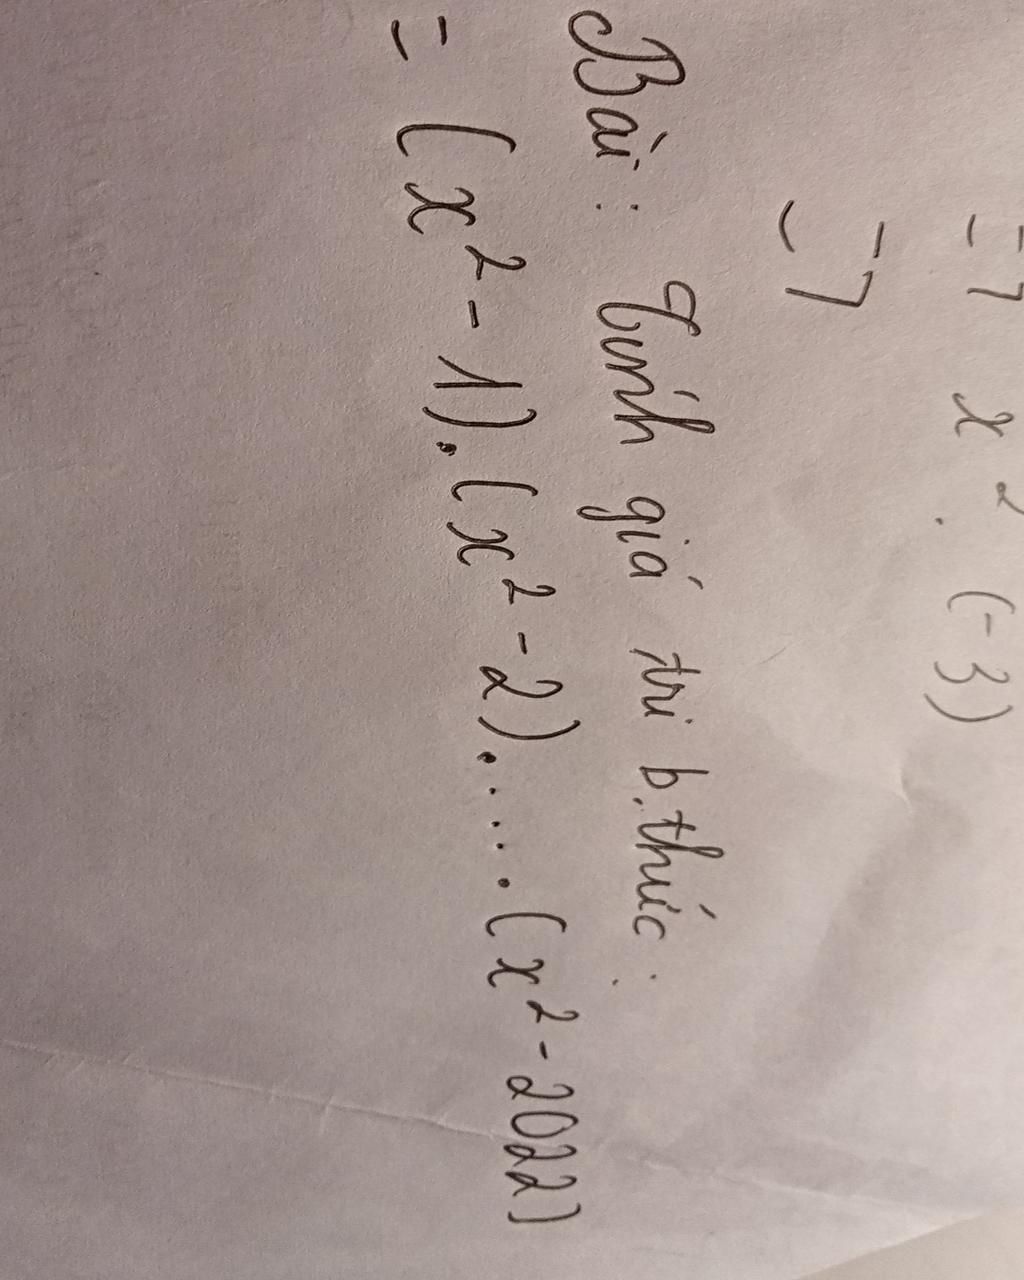 = 7 x². (-3)
= 7
Bài: Tính giá tri b.thức:
= (x² - 1).(x² - 2).....(x² - 2022)